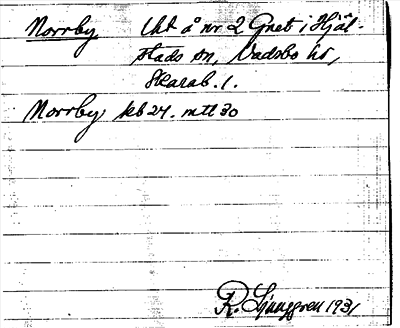 Norrby lht å nr 2 Gnet i Hjäl-
stads sn, Vadsbo hd,
Skarab. l.
Norrby kb 24. mtl 30
R. Ljunggren 1931